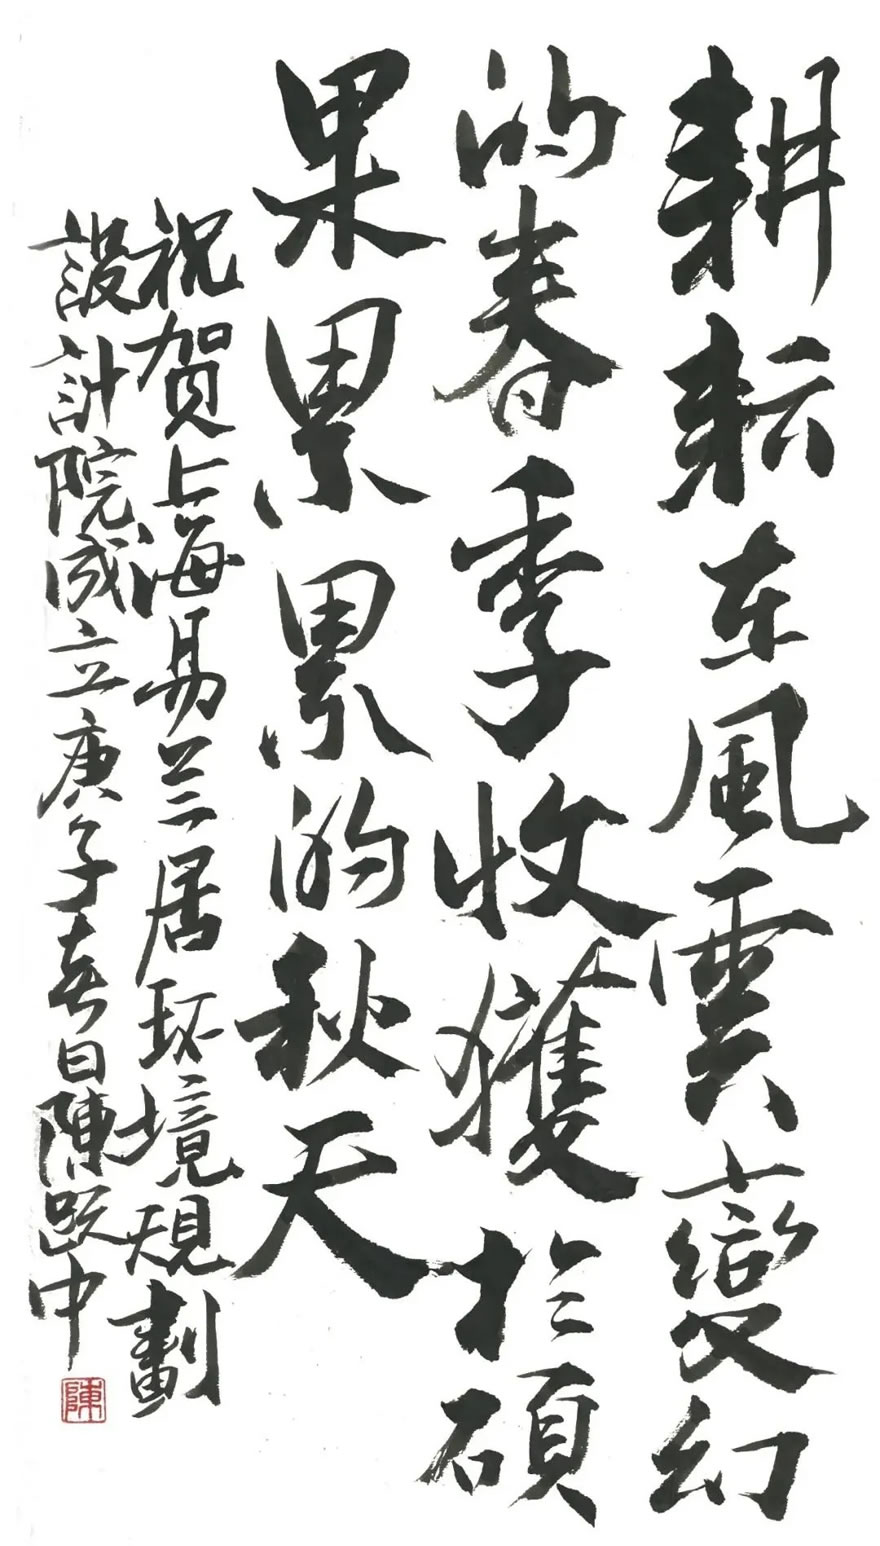 耕耘在風雲變幻
的春季收獲於碩
果累累的秋天
祝贺上海易兰居环境規劃
設計院成立庚子春日陳跃中
陳